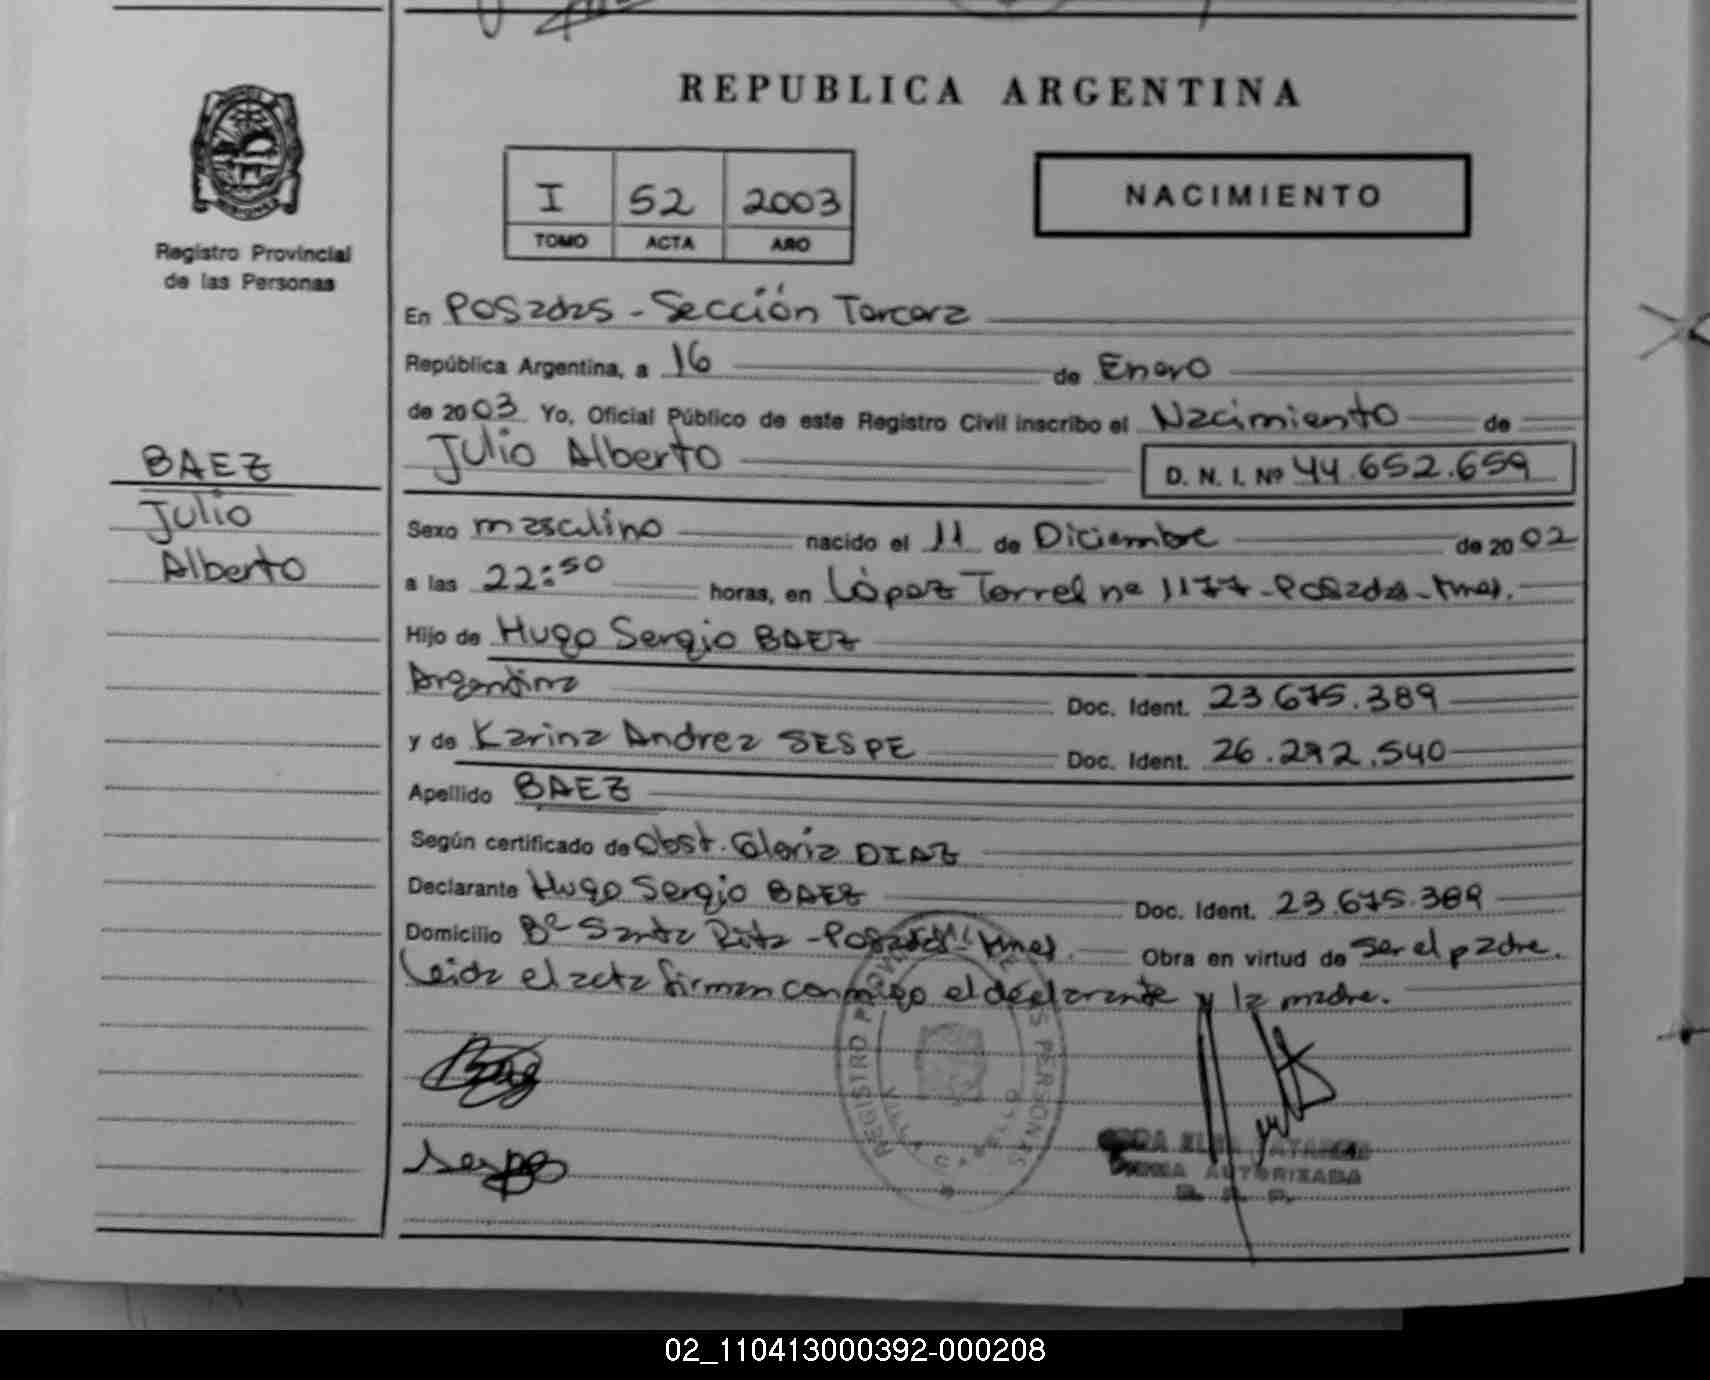 REPUBLICA ARGENTINA
I 52 2003
TOMO ACTA AÑO
NACIMIENTO
Registro Provincial
de las Personas
En Posadas - Sección Tercera
República Argentina, a 16 de Enero
de 2003 Yo, Oficial Público de este Registro Civil inscribo el Nacimiento de
Julio Alberto D. N. I. Nº 44.652.659
BAEZ
Julio
Alberto
Sexo masculino nacido el 11 de Diciembre de 2002
a las 22:50 horas, en López Torres nº 1177 - Posadas - Mnes.
Hijo de Hugo Sergio BAEZ
Argentina Doc. Ident. 23.675.389
y de Karina Andrea SESPE Doc. Ident. 26.292.540
Apellido BAEZ
Según certificado de Obst. Gloria DIAZ
Declarante Hugo Sergio BAEZ Doc. Ident. 23.675.389
Domicilio Bº Santa Rita - Posadas Mnes. Obra en virtud de ser el padre.
Leida el acta firman conmigo el declarante y la madre.
REGISTRO DE LAS PERSONAS
FIRMA AUTORIZADA
02_110413000392-000208